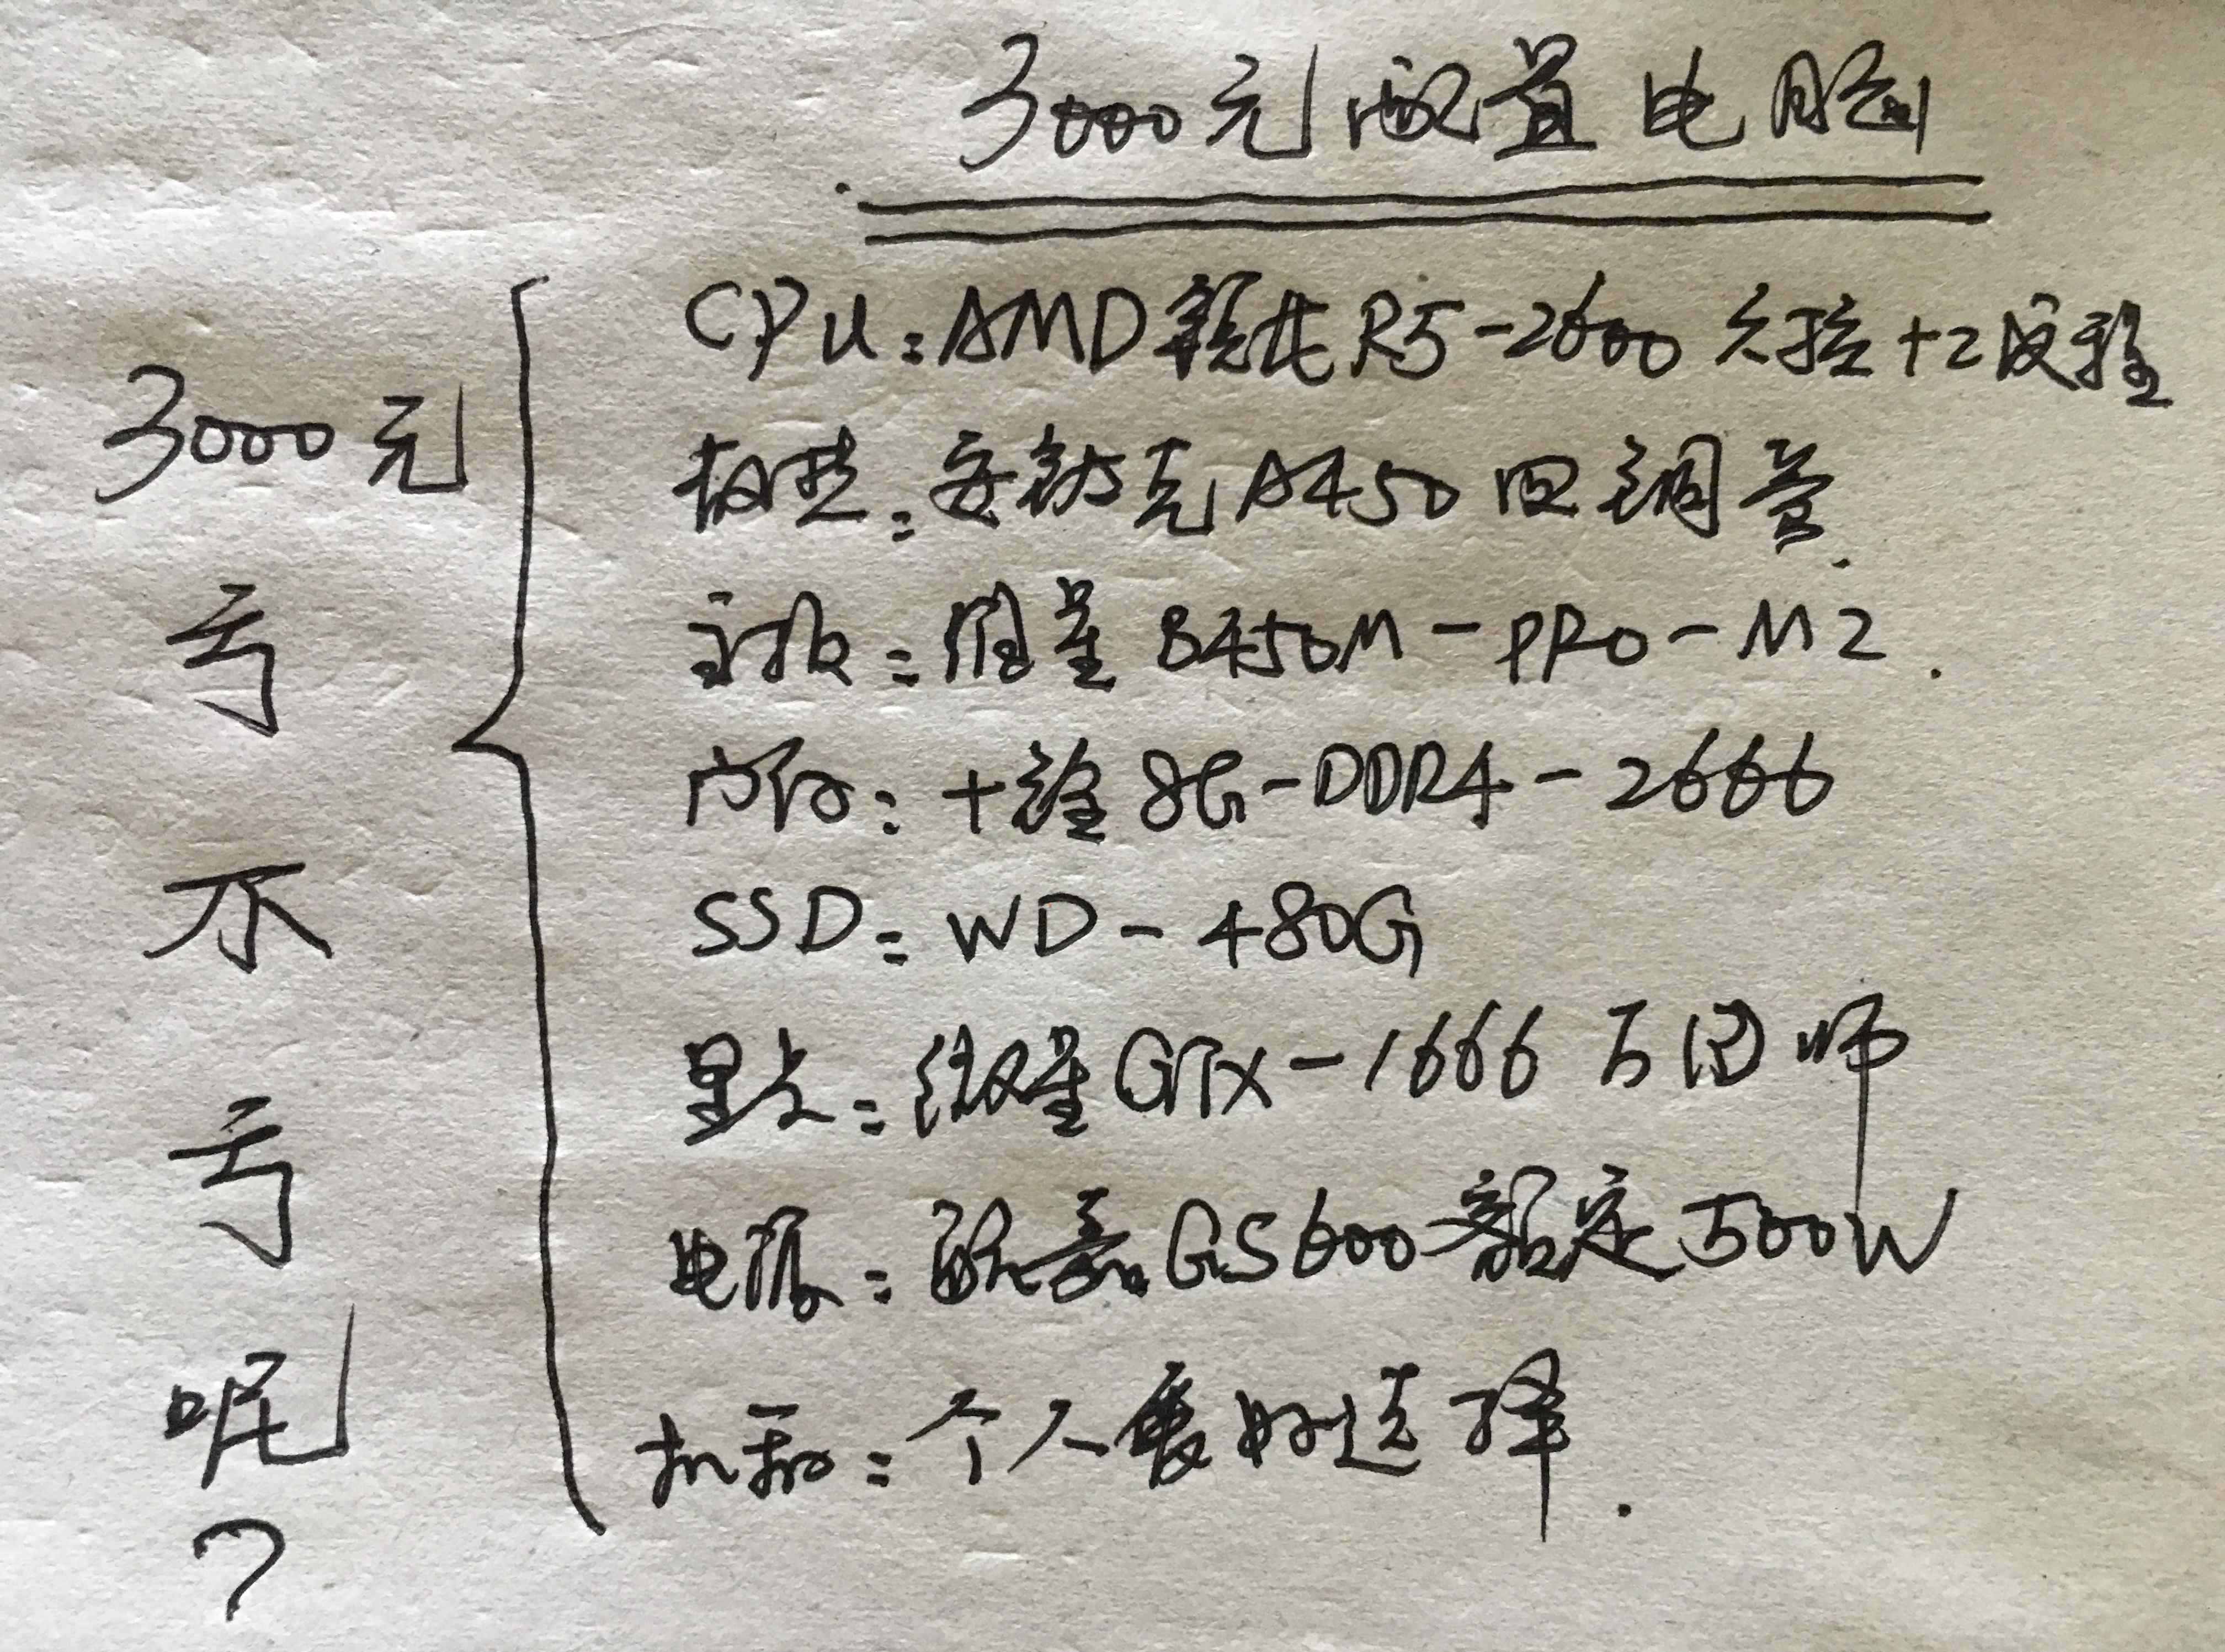 3000元配置电脑
3000元
亏
不
亏
呢
?
CPU:AMD锐龙R5-2600 六核十二线程
散热:安钛克A450四铜管.
主板:微星B450M-PRO-M2.
内存:十铨8G-DDR4-2666
SSD:WD-480G
显卡:微星GTX-1666万图师
电源:航嘉GS600额定500W
机箱:个人爱好选择.